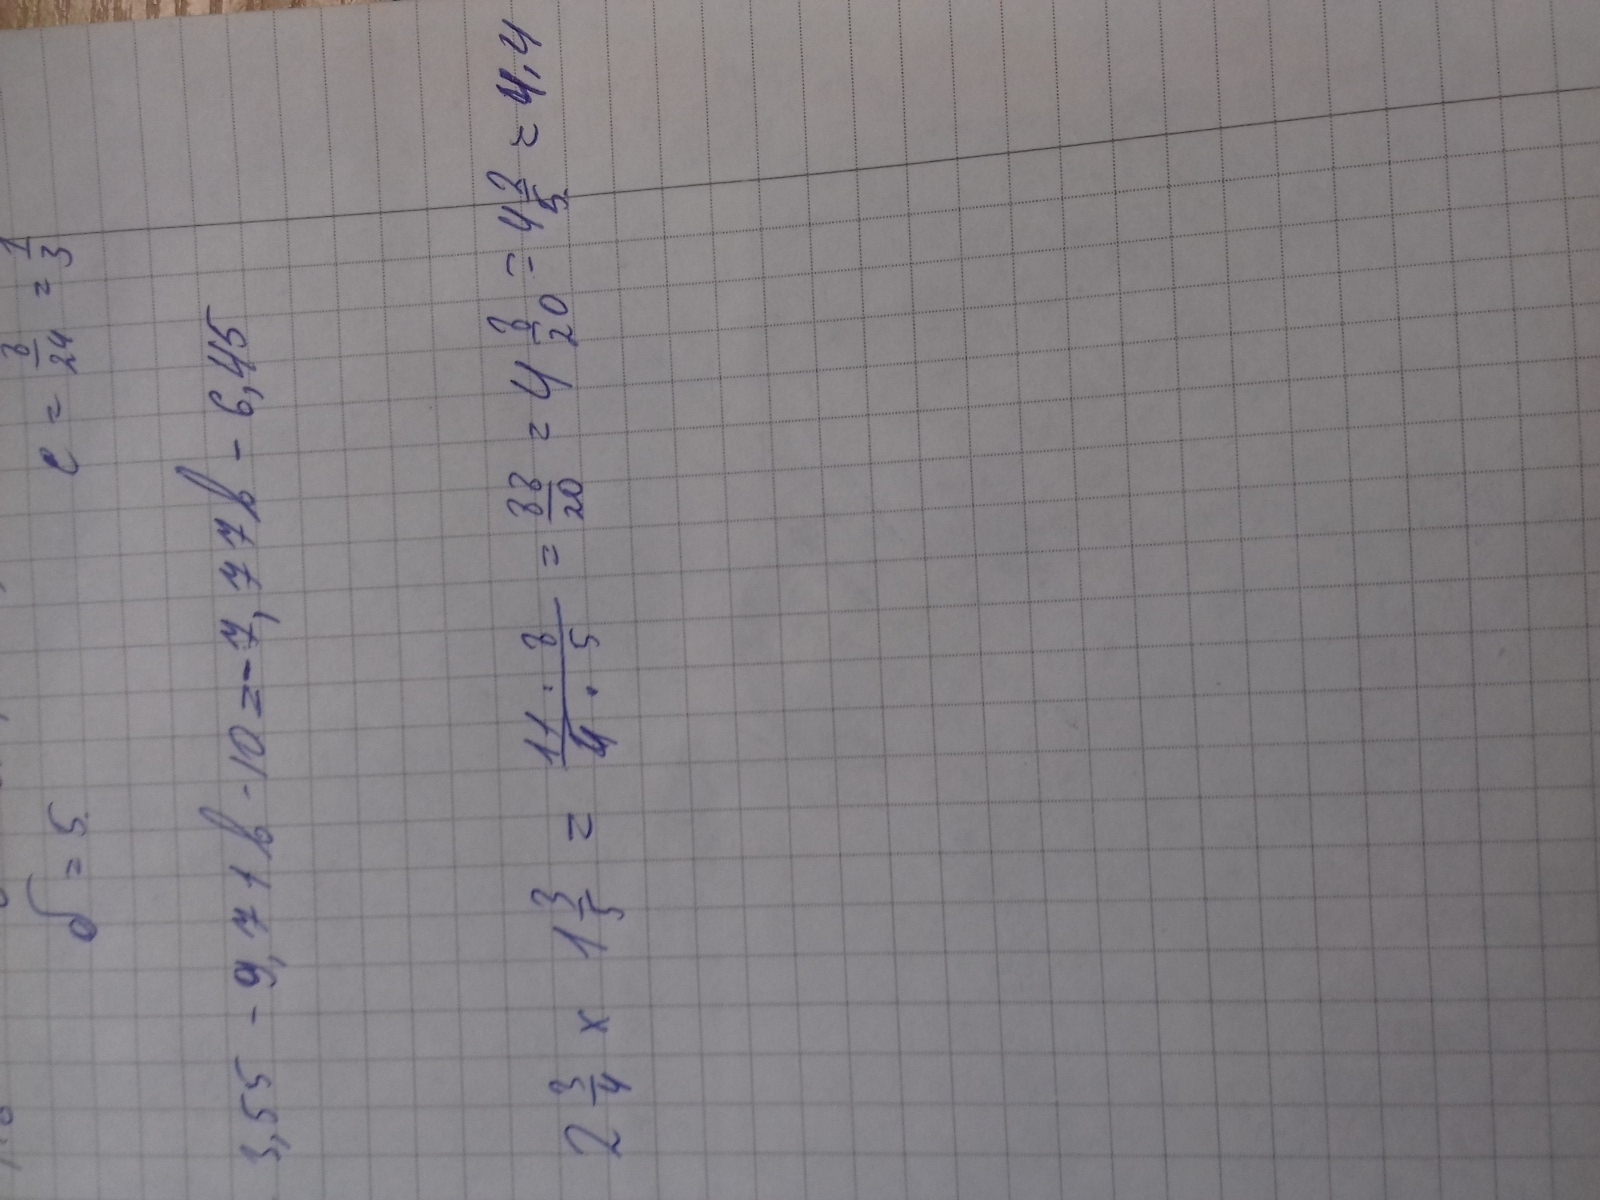 б = 5 e = 8/24 = 1/3
3,55 - 9,71b - 10 = -7,77b - 6,45
2 3/4 x 1 3/5 = 11·8/4·5 = 88/20 = 4 8/20 = 4 2/5 = 4,4